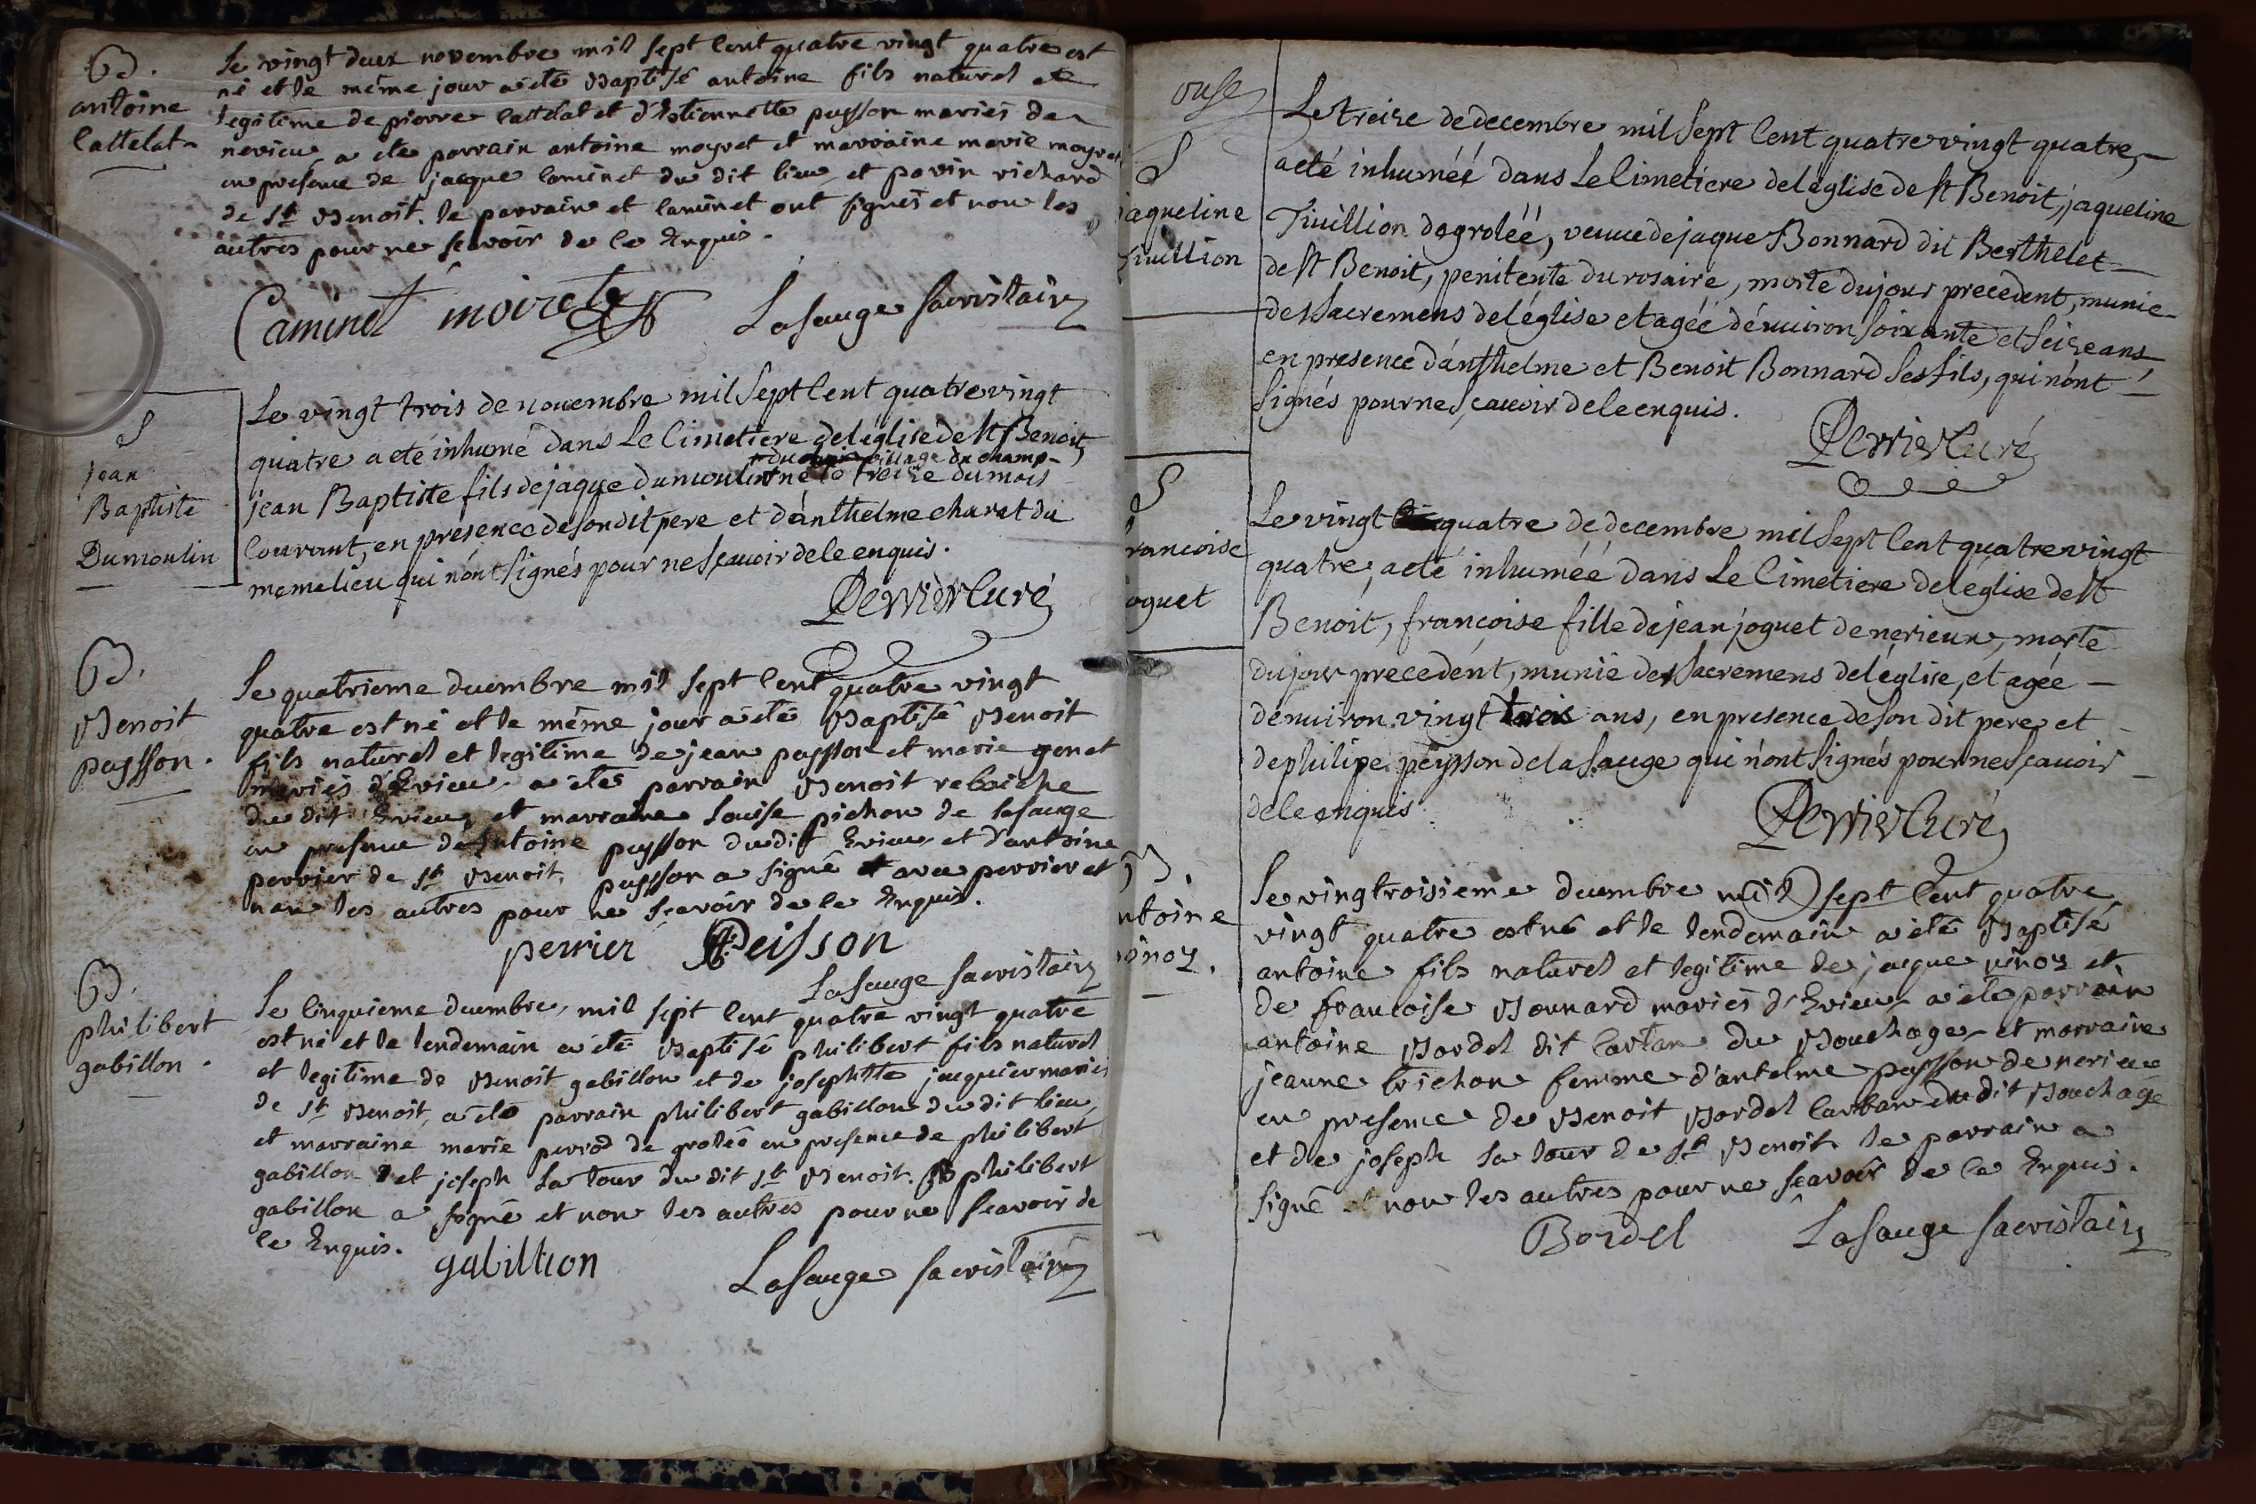 B.
antoine
Cattelat
Le vingt deux novembre mil sept Cent quatre vingt quatre est
né et le même jour a été Baptisé antoine fils naturel et
legitime de pierre Cattelat et d'Estiennette puysson mariés de
nerieu a été parrain antoine moyret et marraine marie moyret
en presence de jacque Caminet du dit lieu et pavin richard
de St Benoit. le parrain et Caminet ont signés et non les
autres pour ne scavoir de ce Enquis.
Caminet moiret
Lasauge sacristain
S
jean
Baptiste
Dumoulin
Le vingt trois de novembre mil Sept Cent quatre vingt
quatre a eté inhumé dans Le Cimetiere de l'église de St Benoit
du village du champ
jean Baptiste fils de jaque dumoulin né le treize du mois
Courant, en presence de son dit pere et d'anthelme charet du
meme lieu qui n'ont signés pour ne sçavoir de le enquis.
Perrier Curé
B.
Benoit
puysson.
Le quatrieme decembre mil sept Cent quatre vingt
quatre est né et le même jour a été Baptisé Benoit
fils naturel et legitime de jean puysson et marie genet
mariés d'Evieu a été parrain Benoit rebaiche
du dit Evieu et marraine Louise pichon de lasauge
en presence d'antoine puysson du dit Evieu et d'antoine
perrier de St Benoit, puysson a signé avec perrier et
non les autres pour ne scavoir de ce Enquis.
perrier Peisson
Lasauge sacristain
B.
philibert
gabillon.
Le Cinquieme decembre mil sept Cent quatre vingt quatre
est né et le lendemain a été Baptisé philibert fils naturel
et legitime de Benoit gabillon et de josephtte jacquier mariés
de St Benoit, a été parrain philibert gabillon du dit lieu
et marraine marie pervod de groleé en presence de philibert
gabillon et joseph La tour du dit St Benoit. philibert
gabillon a signé et non les autres pour ne scavoir de
ce Enquis.
gabillion
Lasauge sacristain
onse
S
jaqueline
Tivillion
Le treize de decembre mil Sept Cent quatre vingt quatre,
a eté inhumée dans Le Cimetiere de l'église de St Benoit, jaqueline
Tivillion de grolée, veuve de jaque Bonnard dit Berthelet
de St Benoit, penitente du rosaire, morte du jour precedent, munie
des Sacremens de l'église et agée d'environ soixante et seize ans
en presence d'anthelme et Benoit Bonnard ses fils, qui n'ont
signés pour ne sçavoir de le enquis.
Perrier Curé
S
francoise
joguet
Le vingt quatre de decembre mil Sept Cent quatre vingt
quatre, a eté inhumée dans Le Cimetiere de l'église de St
Benoit, françoise fille de jean joguet de nerieux, morte
du jour precedent, munie des Sacremens de l'église, et agée
d'environ vingt trois ans, en presence de son dit pere et
de philipe peysson de la sauge qui n'ont signés pour ne sçavoir
de le enquis.
Perrier Curé
B.
antoine
vinoz.
Le vingtroisieme decembre mil sept Cent quatre
vingt quatre est né et le lendemain a été Baptisé
antoine fils naturel et legitime de jacque vinoz et
de francoise Bonnard mariés d'Evieu a été parrain
antoine Bordel dit Cartan du Bouchage et marraine
jeanne trichon femme d'antelme puysson de nerieu
en presence de Benoit Bordel Cartan du dit Bouchage
et de joseph La tour de St Benoit le parrain a
signé et non les autres pour ne scavoir de ce Enquis.
Bordel
Lasauge sacristain